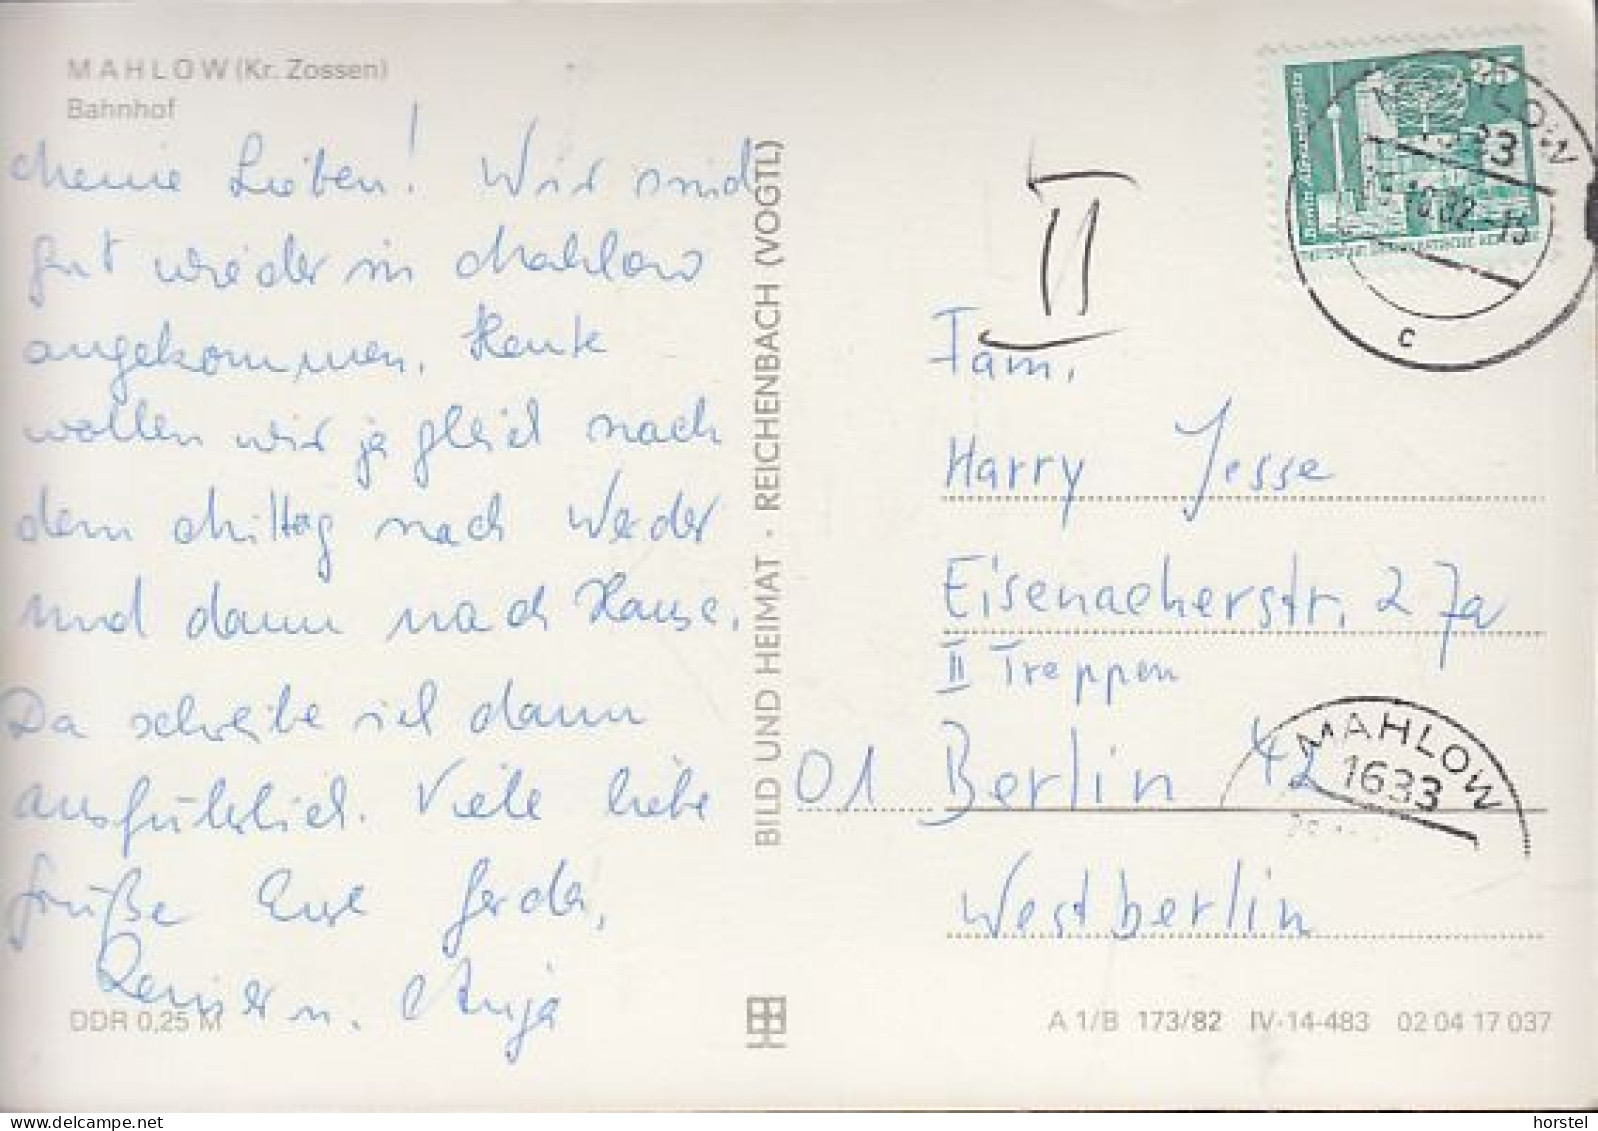 MAHLOW (Kr. Zossen)
Bahnhof
Meine Lieben! Wir sind
gut wieder in Mahlow
angekommen. Heute
wollen wir ja gleich nach
dem Mittag nach Werder
und dann nach Hause.
Da schreibe ich dann
ausführlich. Viele liebe
Grüße Eure Gerda,
u. Anja
DDR 0,25 M
BILD UND HEIMAT · REICHENBACH (VOGTL)
25
MAHLOW
1633
10.82-15
c
II
Fam.
Harry Jesse
Eisenacherstr. 27a
II Treppen
01 Berlin 42
Westberlin
MAHLOW
1633
A 1/B 173/82 IV-14-483 02 04 17 037
delcampe.net
horstel